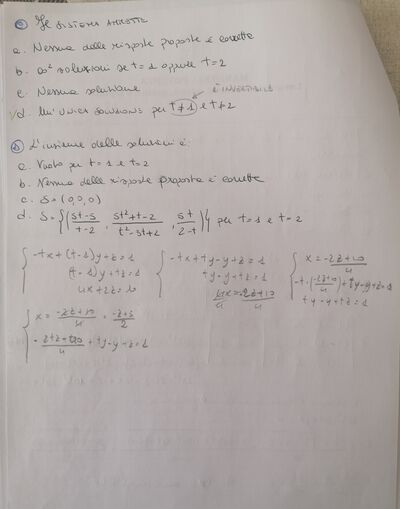 ② Il SISTEMA AMMETTE
a. Nessuna delle risposte proposte è corretta
b. ∞² soluzioni se t=1 oppure t=2
c. Nessuna soluzione
d. Un'UNICA SOLUZIONE per t≠1 e t≠2
È INVERTIBILE
③ L'insieme delle soluzioni è:
a. Vuoto per t=1 e t=2
b. Nessuna delle risposte proposte è corretta
c. S=(0,0,0)
d. S={(5t-5/t-2, 5t²+t-2/t²-3t+2, 5t/2-t)} per t=1 e t=2
{-tx+(t-1)y+z=1 {-tx+ty-y+z=1 {x=-2z+10/4
(t-1)y+tz=1 ty-y+tz=1 -t·(-2z+10/4)+ty-y+z=1
4x+2z=10 4x/4=-2z+10/4 ty-y+tz=1
{x=-2z+10/4=-z+5/2
+ty-y+z=1